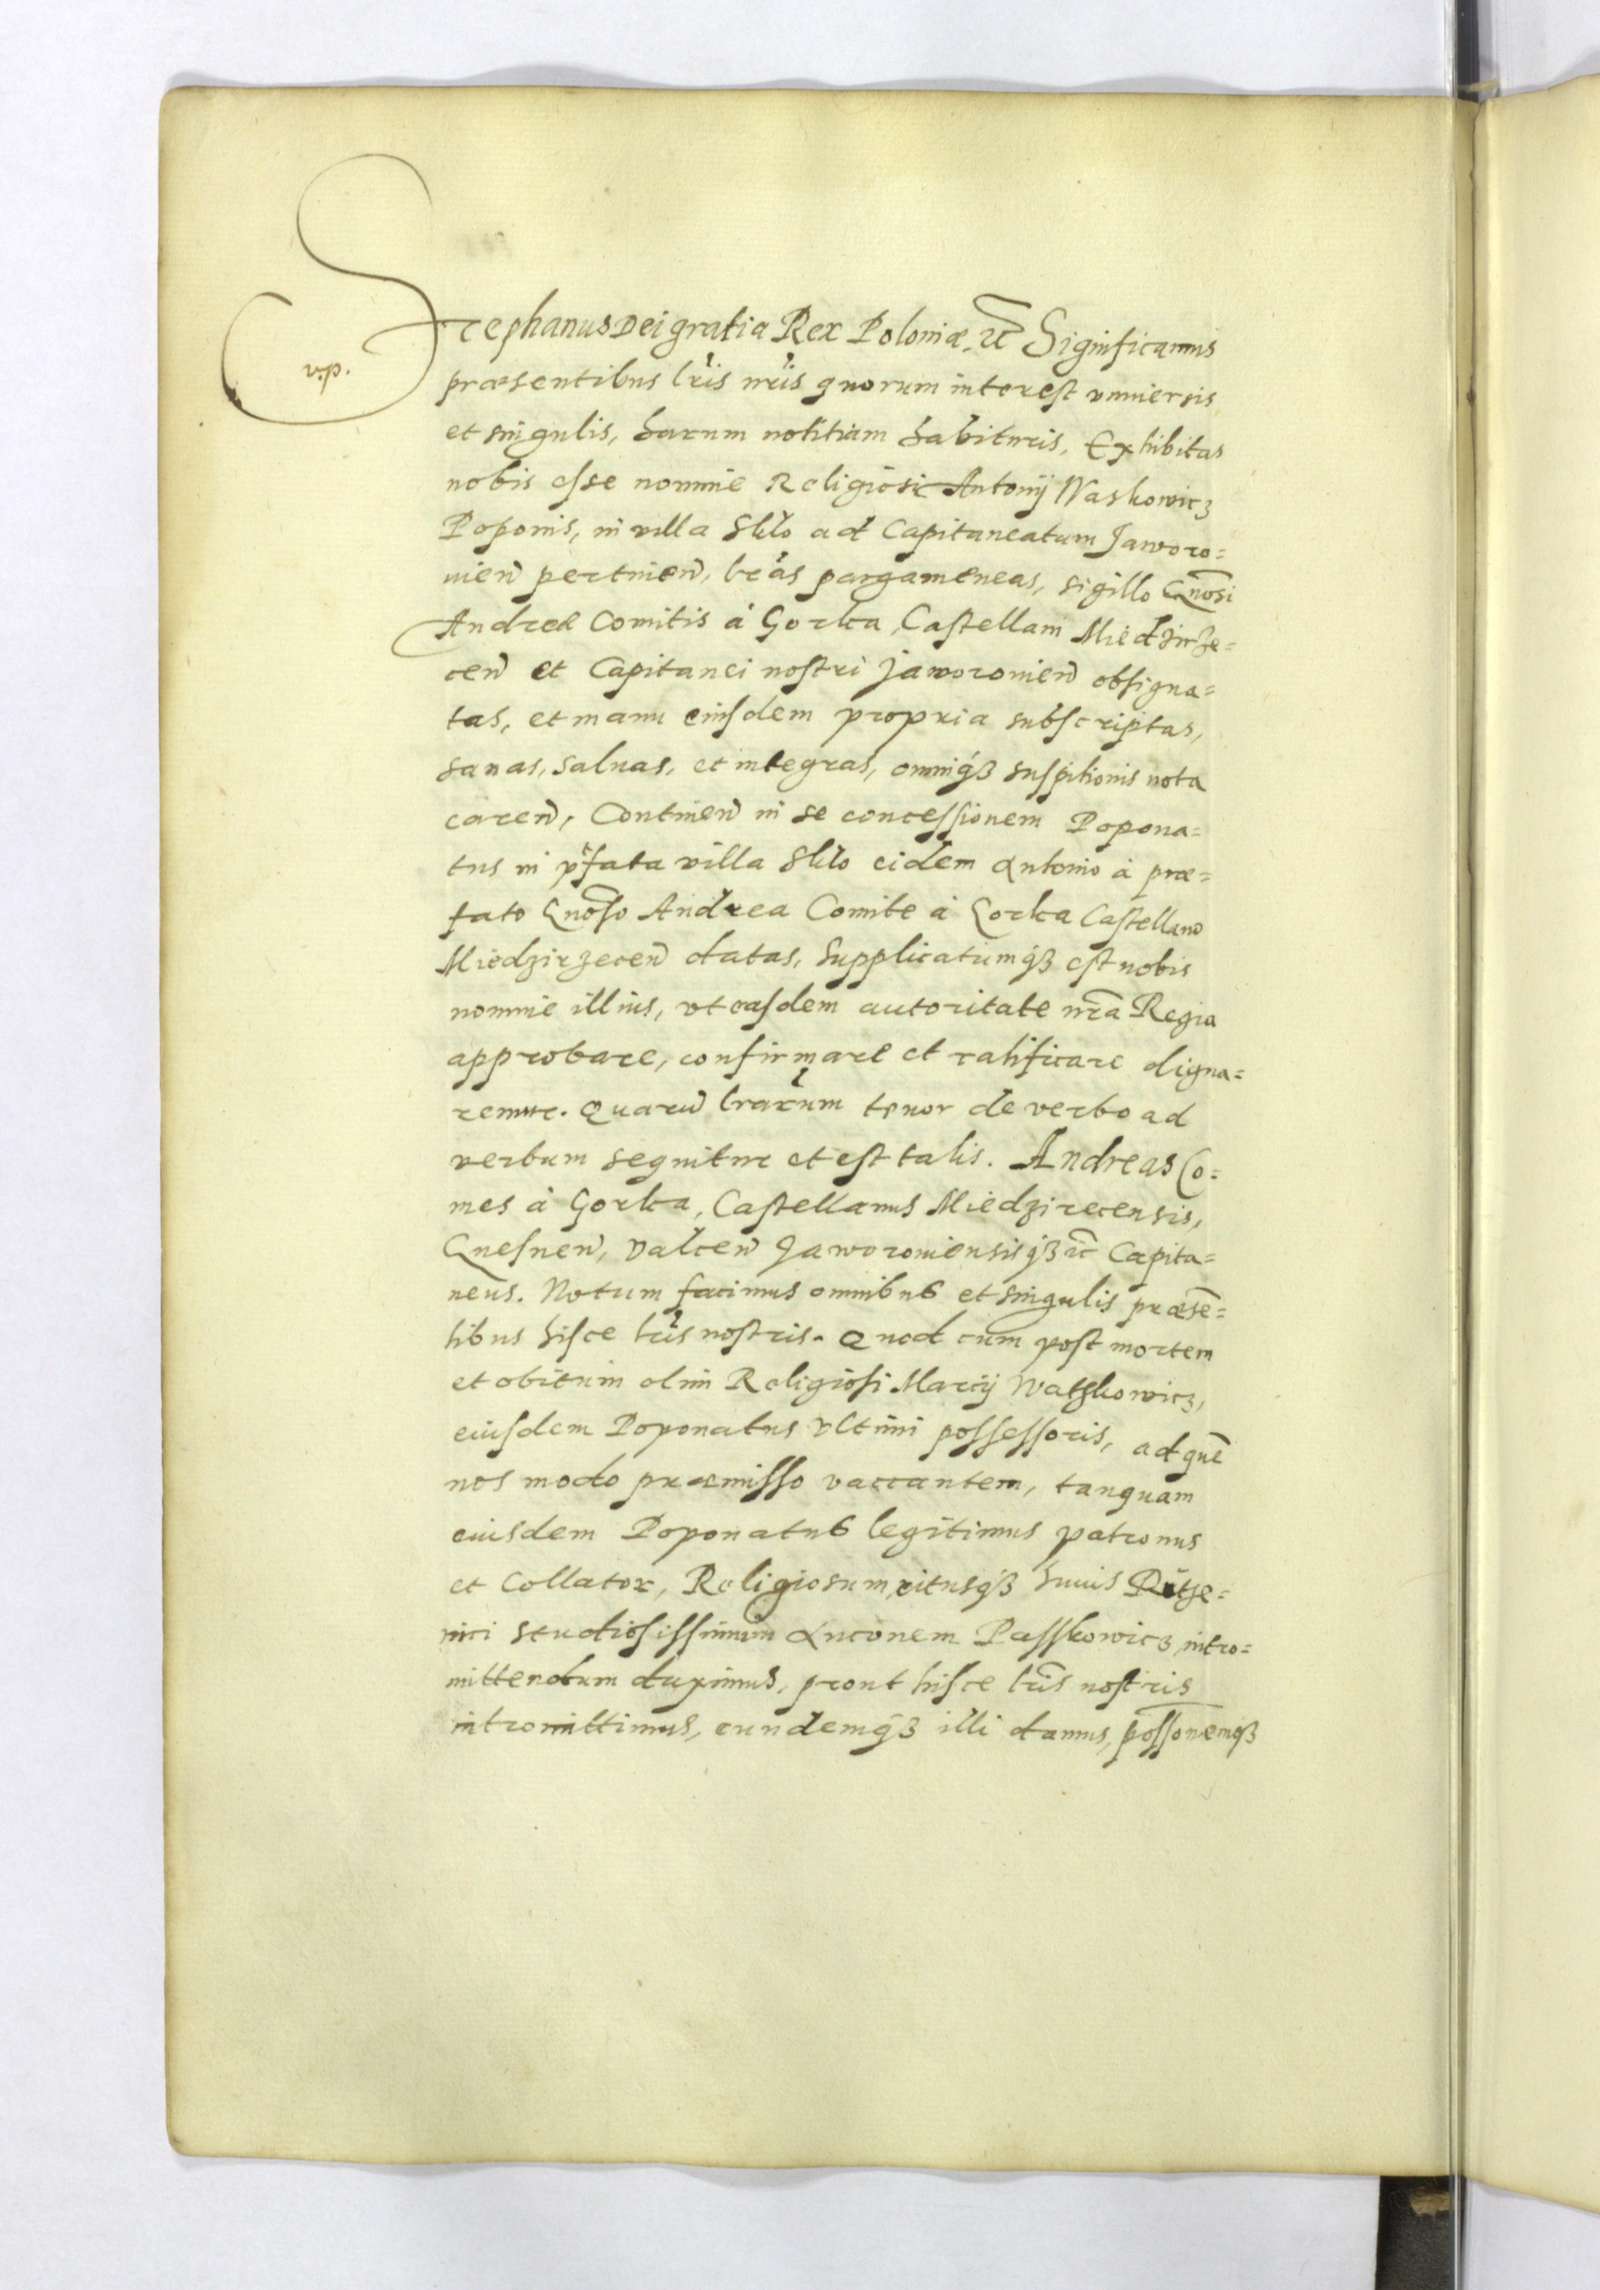 vip.
Stephanus Dei gratia Rex Poloniæ, etc̃ Significamus
præsentibus lr̃is nr̃is quorum interest vniuersis
et singulis, harum notitiam habituris, Exhibitas
nobis esse nomine Religiosi Antonij Waskowicz
Poponis, in villa Sklo ad Capitaneatum Jaworo=
uien̄ pertinen̄, lr̃as pargameneas, sigillo Gñosi
Andreæ Comitis à Gorka, Castellani Miedzirze=
cen̄ et Capitanei nostri Jaworouien̄ obsigna=
tas, et manu eiusdem propria subscriptas,
sanas, saluas, et integras, omniq́ꝫ suspitionis nota
caren̄, Continen̄ in se concessionem Popona=
tus in p̃fata villa Sklo eidem Antonio à præ=
fato Gño̅so Andrea Comite à Gorka Castellano
Miedzirzecen̄ datas, Supplicatumq́ꝫ est nobis
nomine illius, vt easdem autoritate nr̃a Regia
approbare, confirmare et ratificare digna=
remur. Quarū lrar̃um tenor de verbo ad
verbum sequitur et est talis. Andreas Co=
mes à Gorka, Castellanus Miedzirecensis,
Gnesnen̄, Valcen̄ Jaworouiensisq́ꝫ etc̃ Capita=
neus. Notum facimus omnibus et singulis præsē=
tibus hisce lr̃is nostris. Quod cum post mortem
et obitum olim Religiosi Marcij Watzkowicz,
eiusdem Poponatus vltimi possessoris, ad quē
nos modo præmisso vaccantem, tanquam
eiusdem Poponatus legitimus patronus
et Collator, Religiosum, ritusq́ꝫ huius Rutze=
nici studiosissimum Anconem Passkowicz intro=
mittendum duximus, prout hisce lr̃is nostris
intromittimus, eundemq́ꝫ illi damus, possonemq́ꝫ